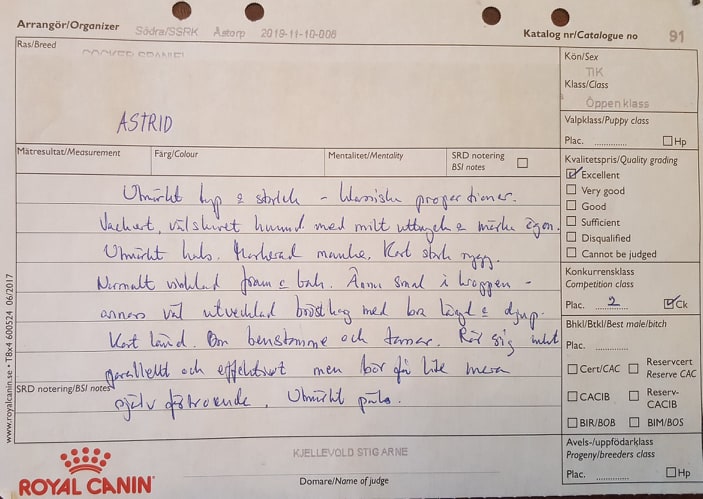 Arrangör/Organizer Södra/SSRK Åstorp 2019-11-10-006 Katalog nr/Catalogue no 91
Ras/Breed
COCKER SPANIEL
ASTRID
Kön/Sex
TIK
Klass/Class
Öppen klass
Valpklass/Puppy class
Plac. .............. Hp
Mätresultat/Measurement Färg/Colour Mentalitet/Mentality SRD notering BSI notes
Kvalitetspris/Quality grading
Excellent
Very good
Good
Sufficient
Disqualified
Cannot be judged
Utmärkt typ & storlek - klassiska proportioner.
Vackert, välskuret huvud med milt uttryck & mörka ögon.
Utmärkt hals. Markerad manke. Kort stark rygg.
Normalt vinklad fram & bak. Ännu smal i kroppen -
annars väl utvecklad bröstkorg med bra längd & djup.
Kort länd. Bra benstomme och tassar. Rör sig
parallellt och effektivt men bör få lite mera
självförtroende. Utmärkt päls.
Konkurrensklass
Competition class
Plac. 2 Ck
Bhkl/Btkl/Best male/bitch
Plac. ..............
Cert/CAC Reservcert Reserve CAC
CACIB Reserv-CACIB
BIR/BOB BIM/BOS
Avels-/uppfödarklass
Progeny/breeders class
Plac. .............. Hp
SRD notering/BSI notes
www.royalcanin.se • TBx4 600524 06/2017
ROYAL CANIN
KJELLEVOLD STIG ARNE
Domare/Name of judge